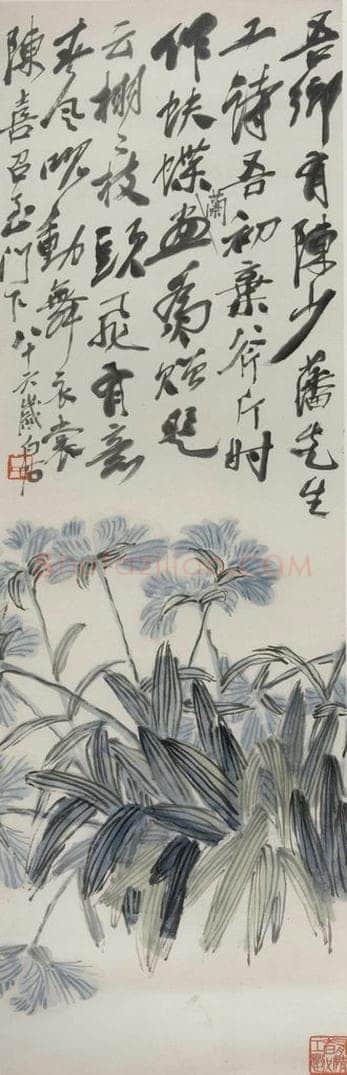 吾鄉有陳少藩先生
工詩吾初棄斧斤時
作蛺蝶蘭畫為贈題
云栩〻枝頭飛有意
春風吹動舞衣裳
陳喜召至門下八十六歲白石